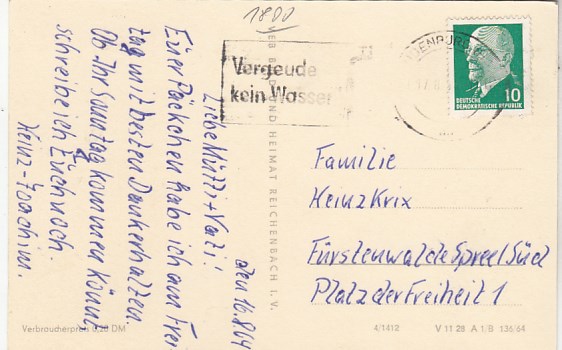 1800
Vergeude
kein Wasser
DEUTSCHE
DEMOKRATISCHE REPUBLIK
10
VEB BILD UND HEIMAT REICHENBACH I. V.
den 16.8.64
Liebe Mutti + Vati!
Euer Päckchen habe ich am Frei
tag mit besten Dank erhalten.
Ob Ihr Sonntag kommen könnt
schreibe ich Euch noch.
Heinz-Joachim.
Familie
Heinz Krix
Fürstenwalde Spree/Süd
Platz der Freiheit 1
Verbraucherpreis 0,20 DM
4/1412
V 11 28 A 1/B 136/64